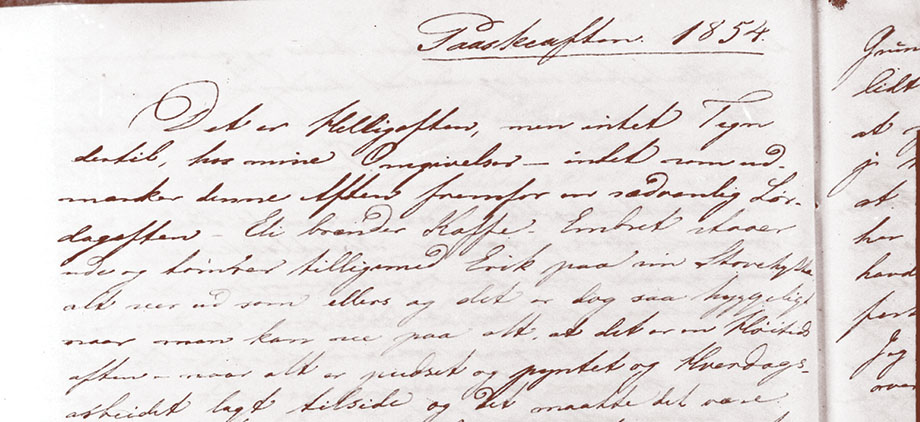 Paaskeaften. 1854.
Det er Helligaften, men intet Tegn
dertil, hos mine Omgivelser – intet som ud-
mærker denne Aften fremfor en sædvanlig Lør-
dagaften – Eli brænder Kaffe – Embret staaer
ude og tømbrer tilligemed Erik paa sin
alt seer ud som ellers og det er dog saa hyggeligt
naar man kan see paa alt, at det er en Høitids
aften – naar alt er pudset og pyntet og Hverdags-
arbeidet lagt tilside og det maatte det være
lidt
at
at
her
Jeg
over